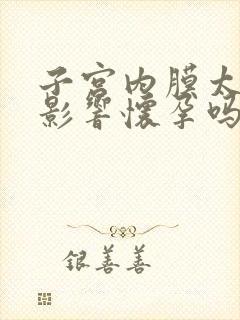 子宫内膜太
影响怀孕吗
银善善